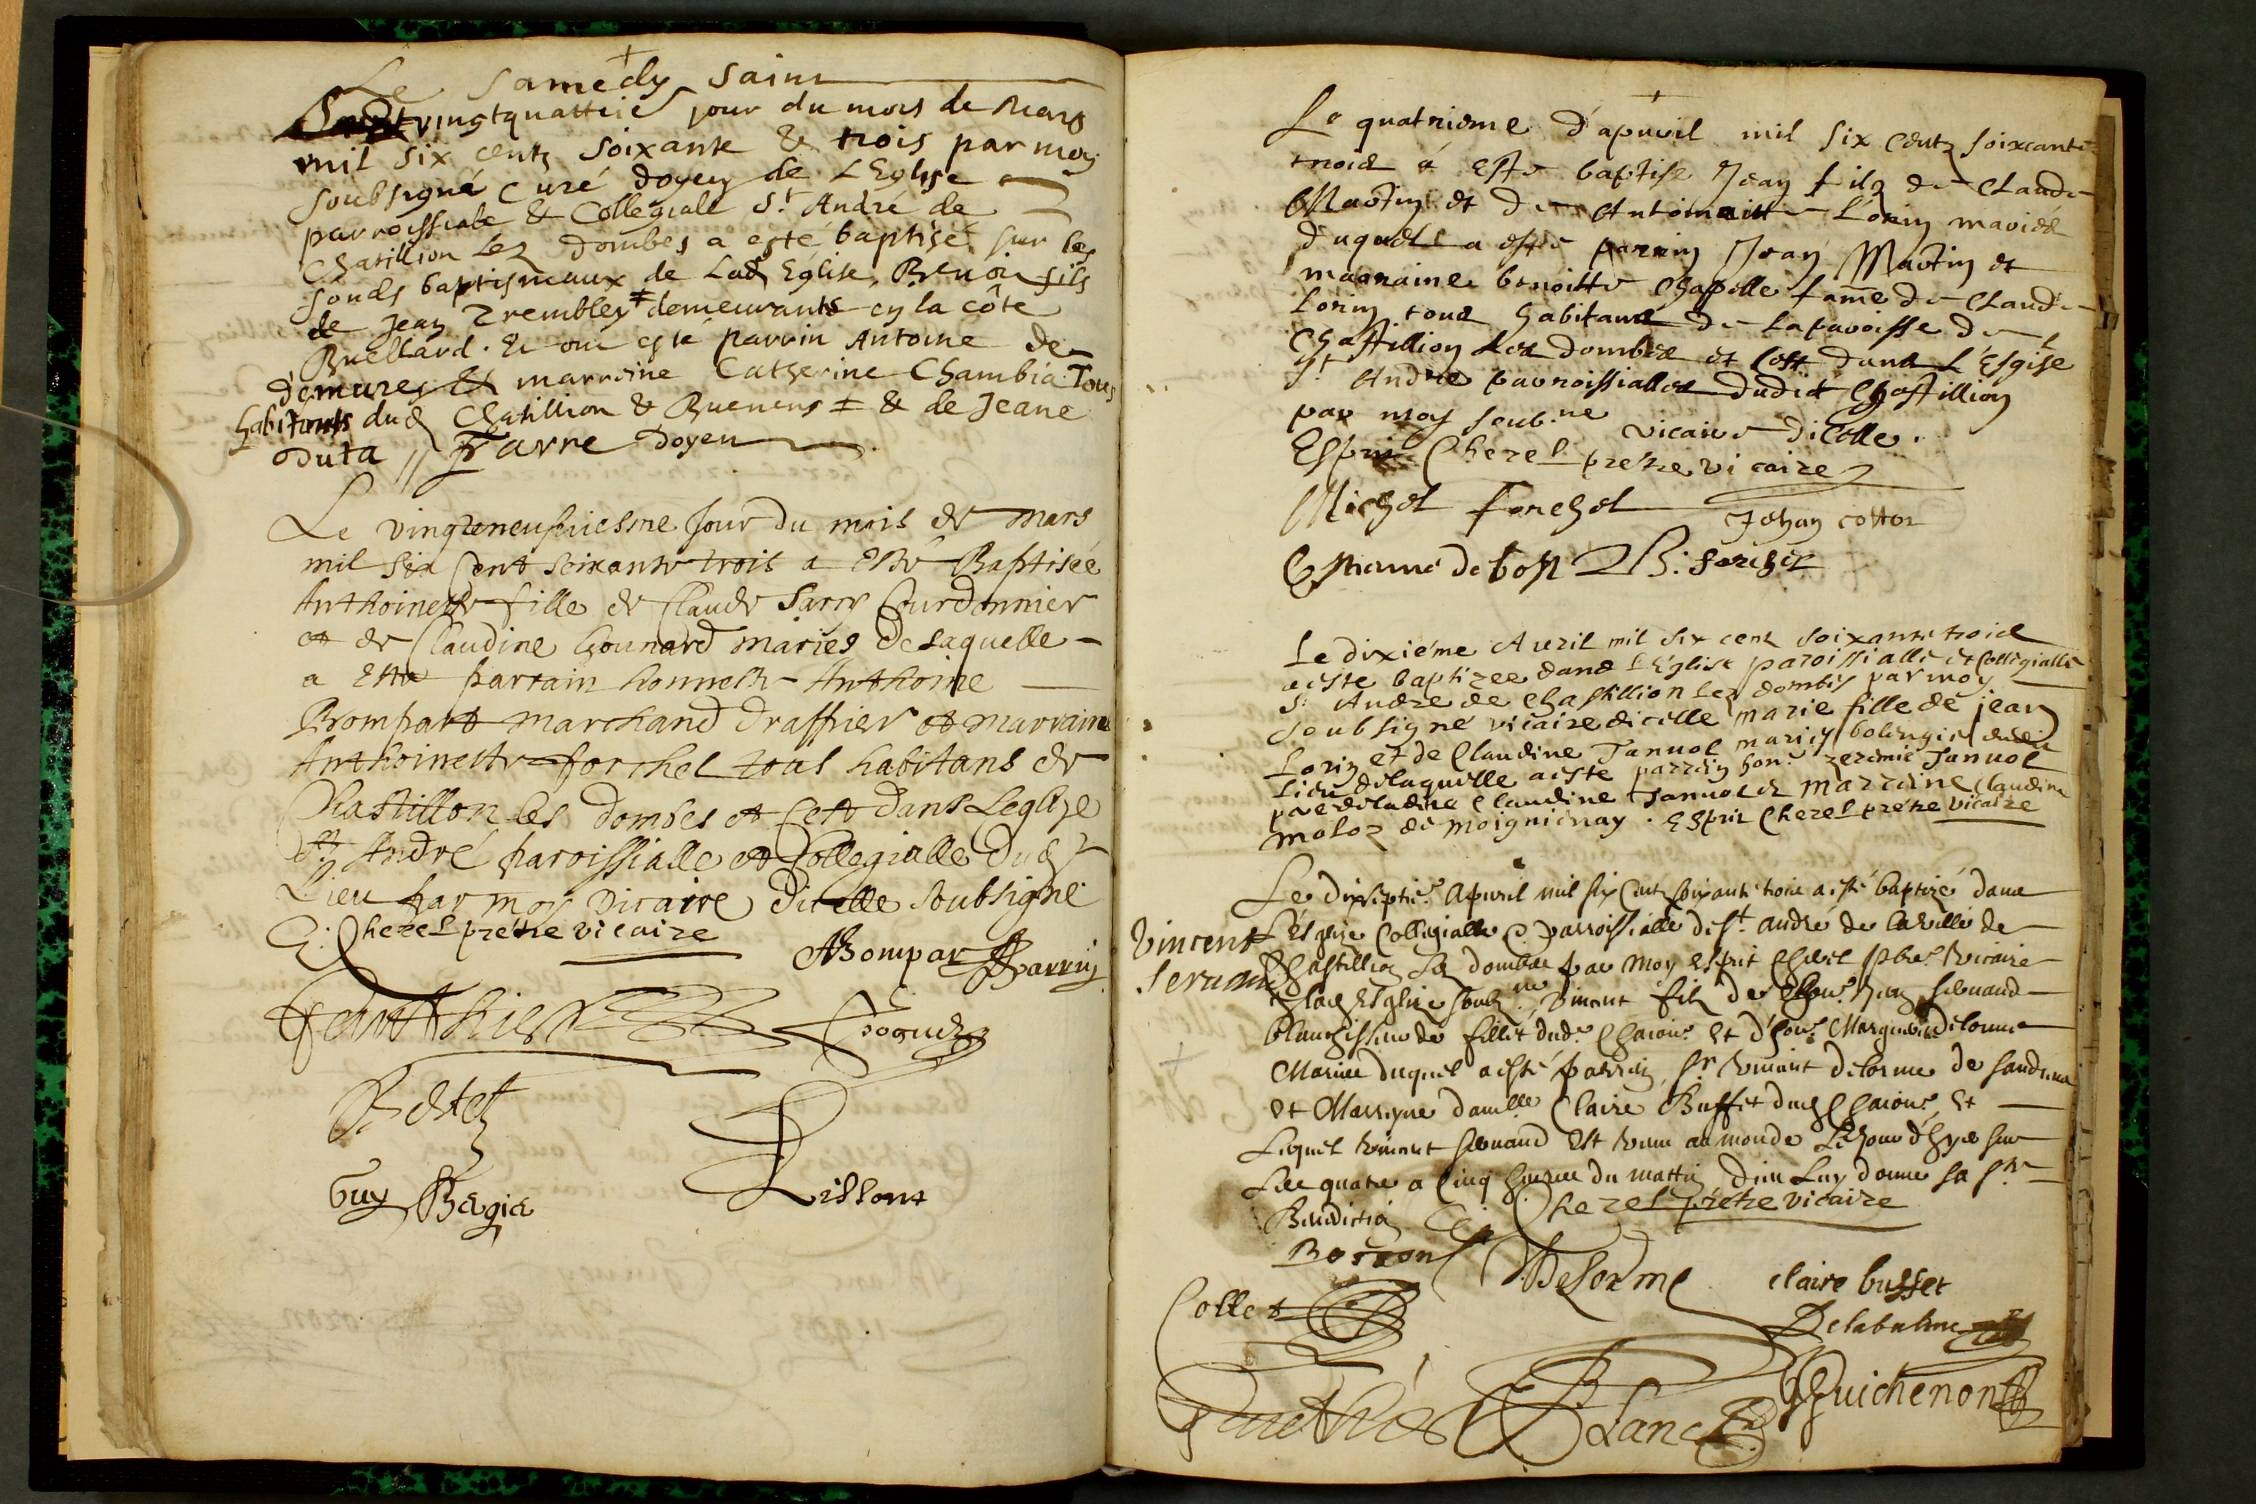 Le samedy saint
vingtquattrie jour du mois de Mars
mil six centz soixante & trois par moy
soubsigné Curé doyen de L'Eglise
parroissiale & Collegiale St André de
Chatillion Lez dombes a esté baptisé sur les
fonds baptismaux de lad Eglise, Benoit fils
de Jean Trembley ‡ demeurants en la côte
Buellard. Et ont esté parrin Antoine de
demures & marreine Catherine Chambia Tous
habitants dud Chatillion & Buenens ‡ & de Jeane
Duta // Farre Doyen
Le vingteneufviesme Jour du mois de Mars
mil six Cent soixante trois a Esté Baptisée
Anthoinette fille de Claude Sarry Courdonnier
et de Claudine Gounard mariés de laquelle
a Esté parrain honneste Anthoine
Bompart marchand drappier et marraine
Anthoinette forchet tous habitans de
Chastillon les Dombes et Cest dans Leglize
St André paroissialle et Collegialle dud
Lieu par moy vicaire dicelle soubsigné
E: Cherel prétre vicaire
ABompar Parrin
Guy Bergie
Lissont
Le quatriesme d'apvril mil six centz soixante
trois a esté baptisé Jean filz de Claude
Martin et de Antoinette Lorin mariés
duquel a esté parrin Jean Martin et
marraine benoitte Chapelle fame de Claude
Lorin tous habitans de la paroisse de
Chastillion Les dombes et cest dans L'Esglise
St André parroissialles dudit Chastillion
par moy soub.ne vicaire dicelle.
Esprit Cherel prétre vicaire
Michel forchet
Jehan cottor
B: forchet
Le dixiéme Avril mil six cent soixante trois
a esté baptizee dans L'Eglise paroissialle et Collegialle
St André de Chastillion Lez dombes par moy
soubsigné vicaire dicelle marie fille de jean
Lorin et de Claudine Januol mariez bolengier dudit
Lieu de laquelle a esté parrain hon. Jeremie Januol
pere de ladite Claudine Januol et marraine Claudine
moloz de moignienay. Esprit Cherel prétre vicaire
Le dixseptie. Apvril mil six Cent soixante trois a esté baptizé dans
L'Esglise Collegialle & parroissialle de St. andré de la ville de
Vincent
Seruand
Chastillion Les dombes par moy esprit Cherel pbre. vicaire
de lad Esglise soubz.né Vincent filz de hon. Jean Seruand
blanchisseur de fillet dud. Chation. et d'hon. Marguerite Delorme
Mariés duquel a esté parrin, Sr Vincent Delorme de Sandrens
et Marryne damlle Claire Buffet dud Chation. Et
Lequel vincent seruand Est venu au monde Le jour d'hyer sur
Les quatre a Cinq heures du mattin, dieu Luy donne sa Ste
Benediction E: Cherel prétre vicaire
Bosson
Delorme
claire buffet
Collet
Delabalme
Blanc
Guichenon